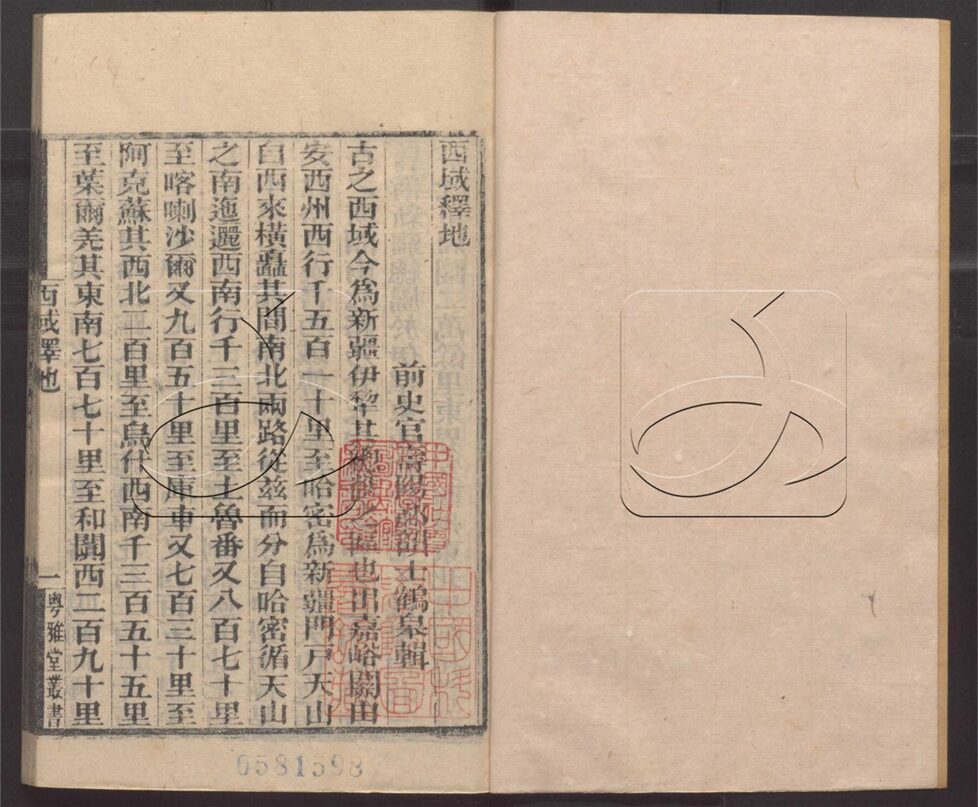 西域釋地
前史官壽陽祁韻士鶴皋輯
古之西域今爲新疆伊犂其總會之區也出嘉峪關由
安西州西行千五百一十里至哈密爲新疆門戶天山
自西來橫矗其間南北兩路從茲而分自哈密循天山
之南迤邐西南行千三百里至土魯番又八百七十里
至喀喇沙爾又九百五十里至庫車又七百三十里至
阿克蘇其西北二百里至烏什西南千三百五十五里
至葉爾羌其東南七百七十里至和闐西二百九十里
西域釋地
一
粤雅堂叢書
0581598